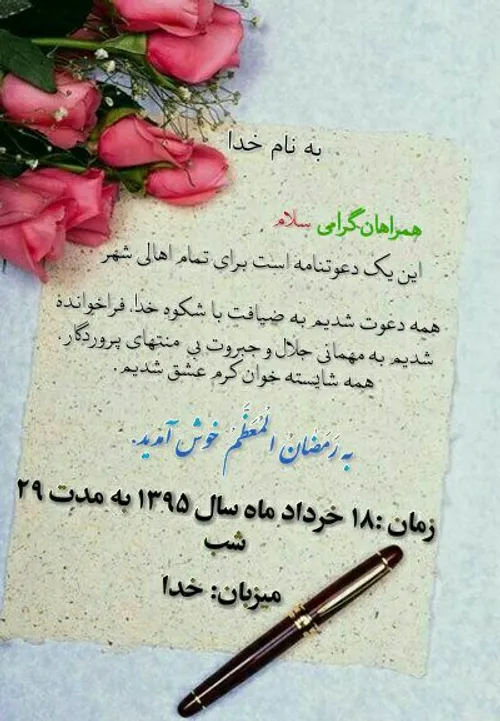 به نام خدا
همراهان گرامی سلام
این یک دعوتنامه است برای تمام اهالی شهر
همه دعوت شدیم به ضیافت با شکوه خدا، فراخوانده
شدیم به مهمانی جلال و جبروت بی منتهای پروردگار.
همه شایسته خوان کرم عشق شدیم.
به رَمَضانُ الْمُعَظَّمُ خوش آمدید.
زمان :۱۸ خرداد ماه سال ۱۳۹۵ به مدت ۲۹
شب
میزبان: خدا